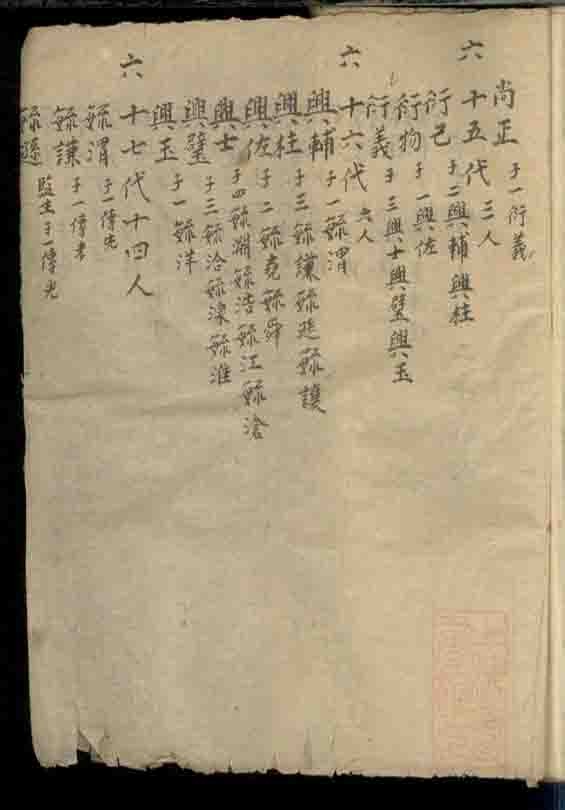 尚正 子一衍義
六十五代 三人
衍己 子二興輔興柱
衍物 子一興佐
衍義 子三興士興璧興玉
六十六代 六人
興輔 子一毓渭
興柱 子三毓謙毓遜毓讓
興佐 子二毓堯毓舜
興士 子四毓淵毓浩毓江毓滄
興璧 子三毓洽毓涑毓淮
興玉 子一毓洋
六十七代十四人
毓渭 子一傳先
毓謙 子一傳
毓遜 監生子一傳光